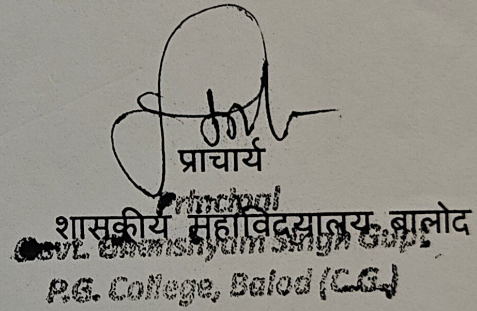 प्राचार्य
Principal
शासकीय महाविद्यालय बालोद
Govt. Ghanshyam Singh Gupt
P.G. College, Balod (C.G.)